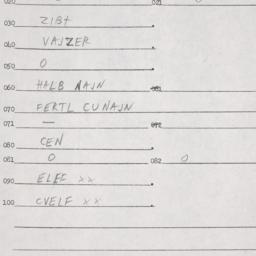 030 ZIBT .
040 VAJZER .
050 O .
060 HALB NAJN 061
070 FERTL CUNAJN .
071 — 072
080 CEN .
081 O 082 O
090 ELEF xx .
100 CVELF xx .